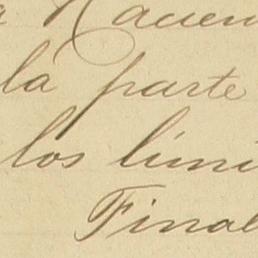 a Hacien
la parte
los lími
Final